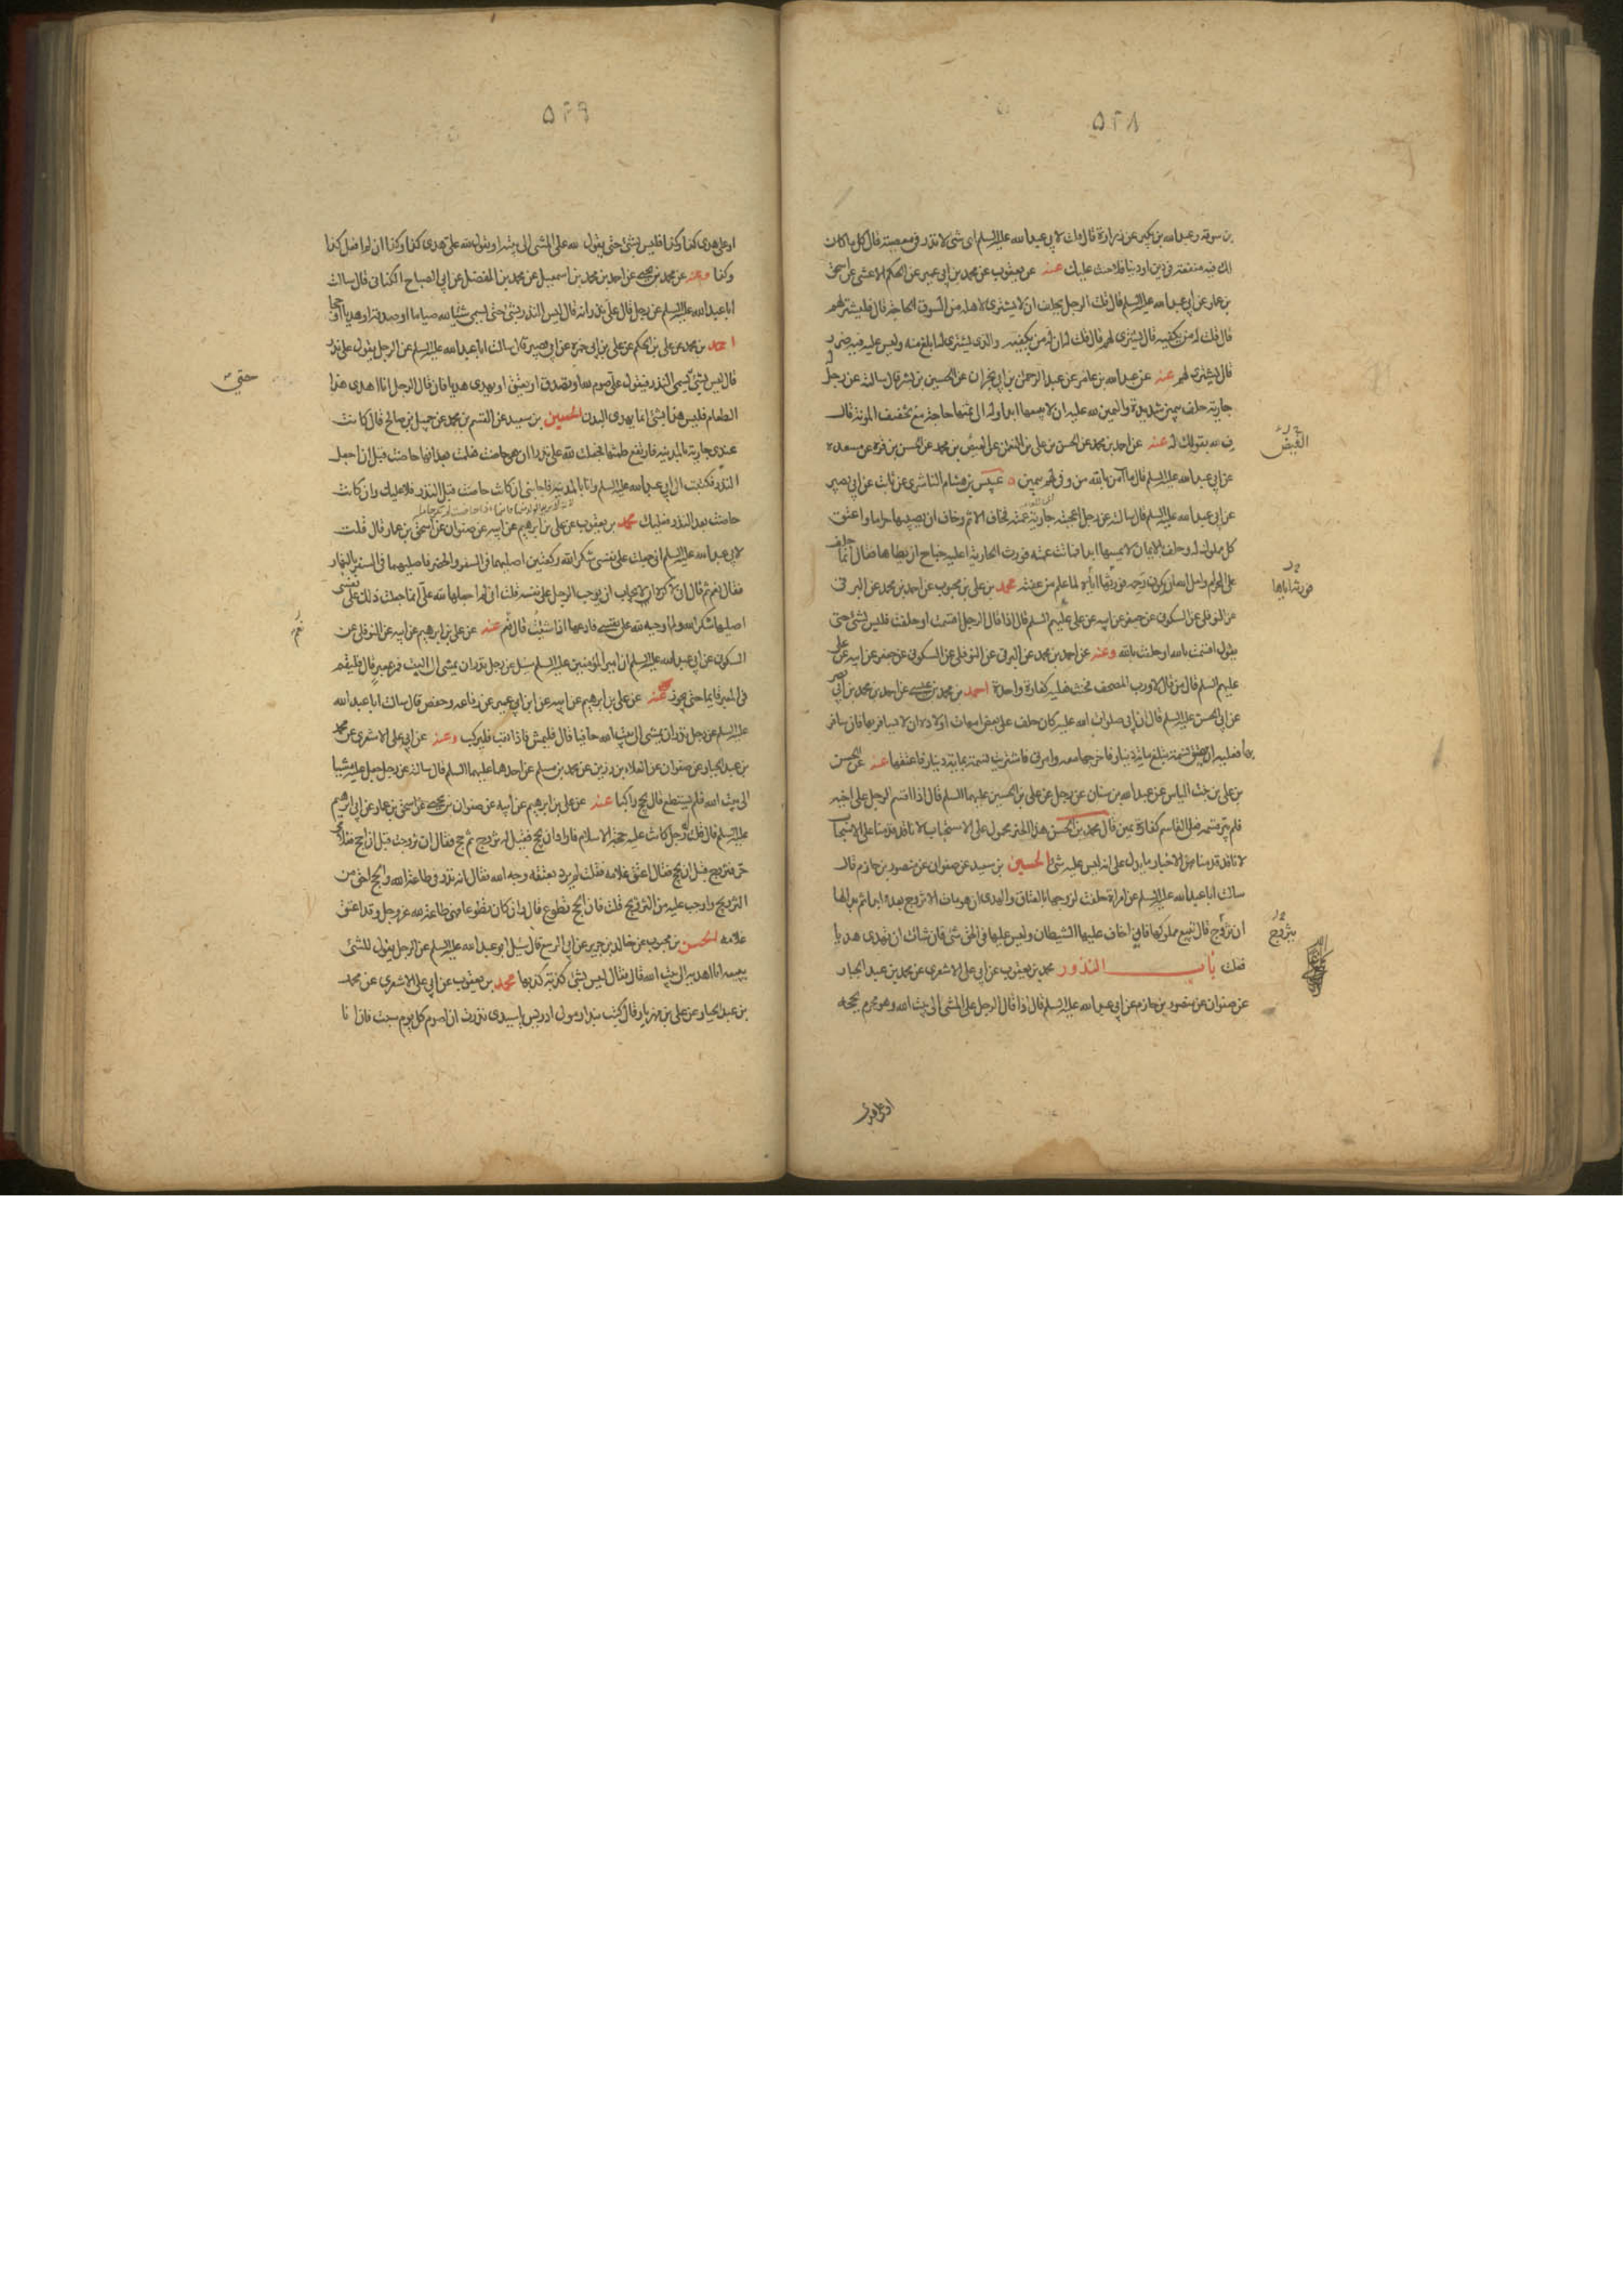 ٥٢٨
بن سوقة وعبد الله بن بكير عن زرارة قال قلت لابي عبد الله عليه السلم اى شئ لا نذر فى معصية قال كل ما كان
لك فيه منفعة فى دين او دنيا فلا حنث عليك عنه عن يعقوب عن محمد بن ابى عمير عن الحكم الاعشى عن اسحق
بن عمار عن ابى عبد الله عليه السلم قال قلت الرجل يحلف ان لا يشترى لاهله من السوق الحاجة قال فليشتر لهم
قال قلت له من يكفيه قال يشترى لهم قال قلت له ان له من يكفيه والذى يشترى له ابلغ منه وليس عليه فيه ضرر
قال يشترى لهم عنه عن عبد الله بن عامر عن عبد الرحمن بن ابى نجران عن الحسين بن بشر قال سالته عن رجل له
جارية حلف بيمين شديدة واليمين لله عليه ان لا يبيعها ابدا وله الى ثمنها حاجة مع تخفيف المؤنة قال
ف لله بقولك له عنه عن احمد بن محمد عن الحسن بن على بن النعمن عن الفيض بن محمد عن الحسن بن قرة عن مسعدة
عن ابى عبد الله عليه السلم قال ما آمن بالله من وفى لهم بيمين ه عبيس بن هشام الناشرى عن ثابت عن ابى بصير
عن ابى عبد الله عليه السلم قال سالته عن رجل اعجبته جارية عمته فخاف الاثم وخاف ان يصيبها حراما واعتق
كل مملوك له وحلف بالايمان لا يمسها ابدا فماتت عمته فورث الجارية اعليه جناح ان يطاها فقال انما حلف
على الحرام ولعل الله ان يكون رحمه فورثها اياه لما علم من عفته محمد بن على بن محبوب عن احمد بن محمد عن البرقى
عن النوفلى عن السكونى عن جعفر عن ابيه عن على عليهم السلم قال اذا قال الرجل اقسمت او حلفت فليس بشئ حتى
يقول اقسمت بالله او حلفت بالله وعنه عن احمد بن محمد عن البرقى عن النوفلى عن السكونى عن جعفر عن ابيه عن على
عليهم السلم قال من قال لا ورب المصحف فحنث فعليه كفارة واحدة احمد بن محمد بن عيسى عن احمد بن محمد بن ابى نصر
عن ابى الحسن عليه السلم قال ان ابى صلوات الله عليه كان حلف على بعض امهات اولاده ان لا يسافر بها فان سافر
بها فعليه ان يعتق نسمة تبلغ مائة دينار فاخرجها معه وامرنى فاشتريت نسمة بمائة دينار فاعتقها عنه عن الحسن
بن على بن بنت الياس عن عبد الله بن سنان عن رجل عن على بن الحسين عليهما السلم قال اذا اقسم الرجل على اخيه
فلم يبر قسمه فعلى القاسم كفارة يمين قال محمد بن الحسن هذا الخبر محمول على الاستحباب لانا قد قدمنا على الاستحباب
لانا قد قدمنا من الاخبار ما يدل على انه ليس عليه شئ الحسين بن سعيد عن صفوان عن منصور بن حازم قال
سالت ابا عبد الله عليه السلم عن امراة حلفت لزوجها بالعتاق والهدى ان هو مات الا تزوج بعده ابدا ثم بدا لها
ان تزوج قال تبيع مملوكها فانى اخاف عليها الشيطان وليس عليها فى الحق شئ فان شاءت ان تهدى هديا
فعلت باب النذور محمد بن يعقوب عن ابى على الاشعرى عن محمد بن عبد الجبار
عن صفوان عن منصور بن حازم عن ابى عبد الله عليه السلم قال اذا قال الرجل على المشى الى بيت الله وهو محرم بحجة
الفيض
فورثه اياها
يتزوج
او على هدى
٥٢٩
او على هدى كذا وكذا فليس بشئ حتى يقول لله على المشى الى بيته او يقول لله على هدى كذا وكذا ان لم افعل كذا
وكذا وعنه عن محمد بن يحيى عن احمد بن محمد بن اسمعيل عن محمد بن المفضل عن ابى الصباح الكنانى قال سالت
ابا عبد الله عليه السلم عن رجل قال على نذر انه قال ليس النذر بشئ حتى يسمى شيئا لله صياما او صدقة او هديا او حجا
احمد بن محمد عن على بن الحكم عن على بن ابى حمزة عن ابى بصير قال سالت ابا عبد الله عليه السلم عن الرجل يقول على نذر
قال ليس بشئ يسمى النذر فيقول على صوم لله او يتصدق او يعتق او يهدى هديا فان قال الرجل انا اهدى هذا
الطعام فليس هذا بشئ انما يهدى البدن الحسين بن سعيد عن القسم بن محمد عن جميل بن صالح قال كانت
عندى جارية بالمدينة فارتفع طمثها فجعلت لله على نذرا ان هى حاضت فعلت بعد انها حاضت قبل ان اجعل
النذر فكتبت الى ابى عبد الله عليه السلم وانا بالمدينة فاجابنى ان كانت حاضت قبل النذر فلا عليك وان كانت
حاضت بعد النذر فعليك محمد بن يعقوب عن على بن ابرهيم عن ابيه عن صفوان عن اسحق بن عمار قال قلت
لابى عبد الله عليه السلم انى جعلت على نفسى شكرا لله ركعتين اصليهما فى السفر والحضر فاصليهما فى السفر بالنهار
فقال نعم ثم قال انى لاكره الايجاب ان يوجب الرجل على نفسه قلت انى لم اجعلها لله على انما جعلت ذلك على نفسى
اصليها شكرا لله ولم اوجبه لله على نفسى فادعها اذا شئت قال نعم عنه عن على بن ابرهيم عن ابيه عن النوفلى عن
السكونى عن ابى عبد الله عليه السلم ان امير المؤمنين عليه السلم سئل عن رجل نذر ان يمشى الى البيت فمر بمعبر قال فليقم
فى المعبر قائما حتى يجوز عنه عن على بن ابرهيم عن ابيه عن ابن ابى عمير عن رفاعة وحفص قال سالت ابا عبد الله
عليه السلم عن رجل نذر ان يمشى الى بيت الله حافيا قال فليمش فاذا تعب فليركب وعنه عن ابى على الاشعرى عن محمد
بن عبد الجبار عن صفوان عن العلاء بن رزين عن محمد بن مسلم عن احدهما عليهما السلم قال سالته عن رجل جعل عليه مشيا
الى بيت الله فلم يستطع قال يحج راكبا عنه عن على بن ابرهيم عن ابيه عن صفوان بن يحيى عن اسحق بن عمار عن ابى ابرهيم
عليه السلم قال قلت له رجل كانت عليه حجة الاسلام فاراد ان يحج فقيل له تزوج ثم حج فقال ان تزوجت قبل ان احج فغلامى
حر فتزوج قبل ان يحج فقال اعتق غلامه فقلت لم يرد بعتقه وجه الله فقال انه نذر فى طاعة الله والحج احق من
التزويج واوجب عليه من التزويج قلت فان الحج تطوع قال وان كان تطوعا فهى طاعة لله عز وجل وقد اعتق
غلامه الحسن بن محبوب عن خالد بن جرير عن ابى الربيع قال سئل ابو عبد الله عليه السلم عن الرجل يقول للشئ
يبيعه انا اهديه الى بيت الله قال فقال ليس بشئ كذبة كذبها محمد بن يعقوب عن ابى على الاشعرى عن محمد
بن عبد الجبار عن على بن مهزيار قال كتب بندار مولى ادريس يا سيدى نذرت ان اصوم كل يوم سبت فان انا
حتى
نعم